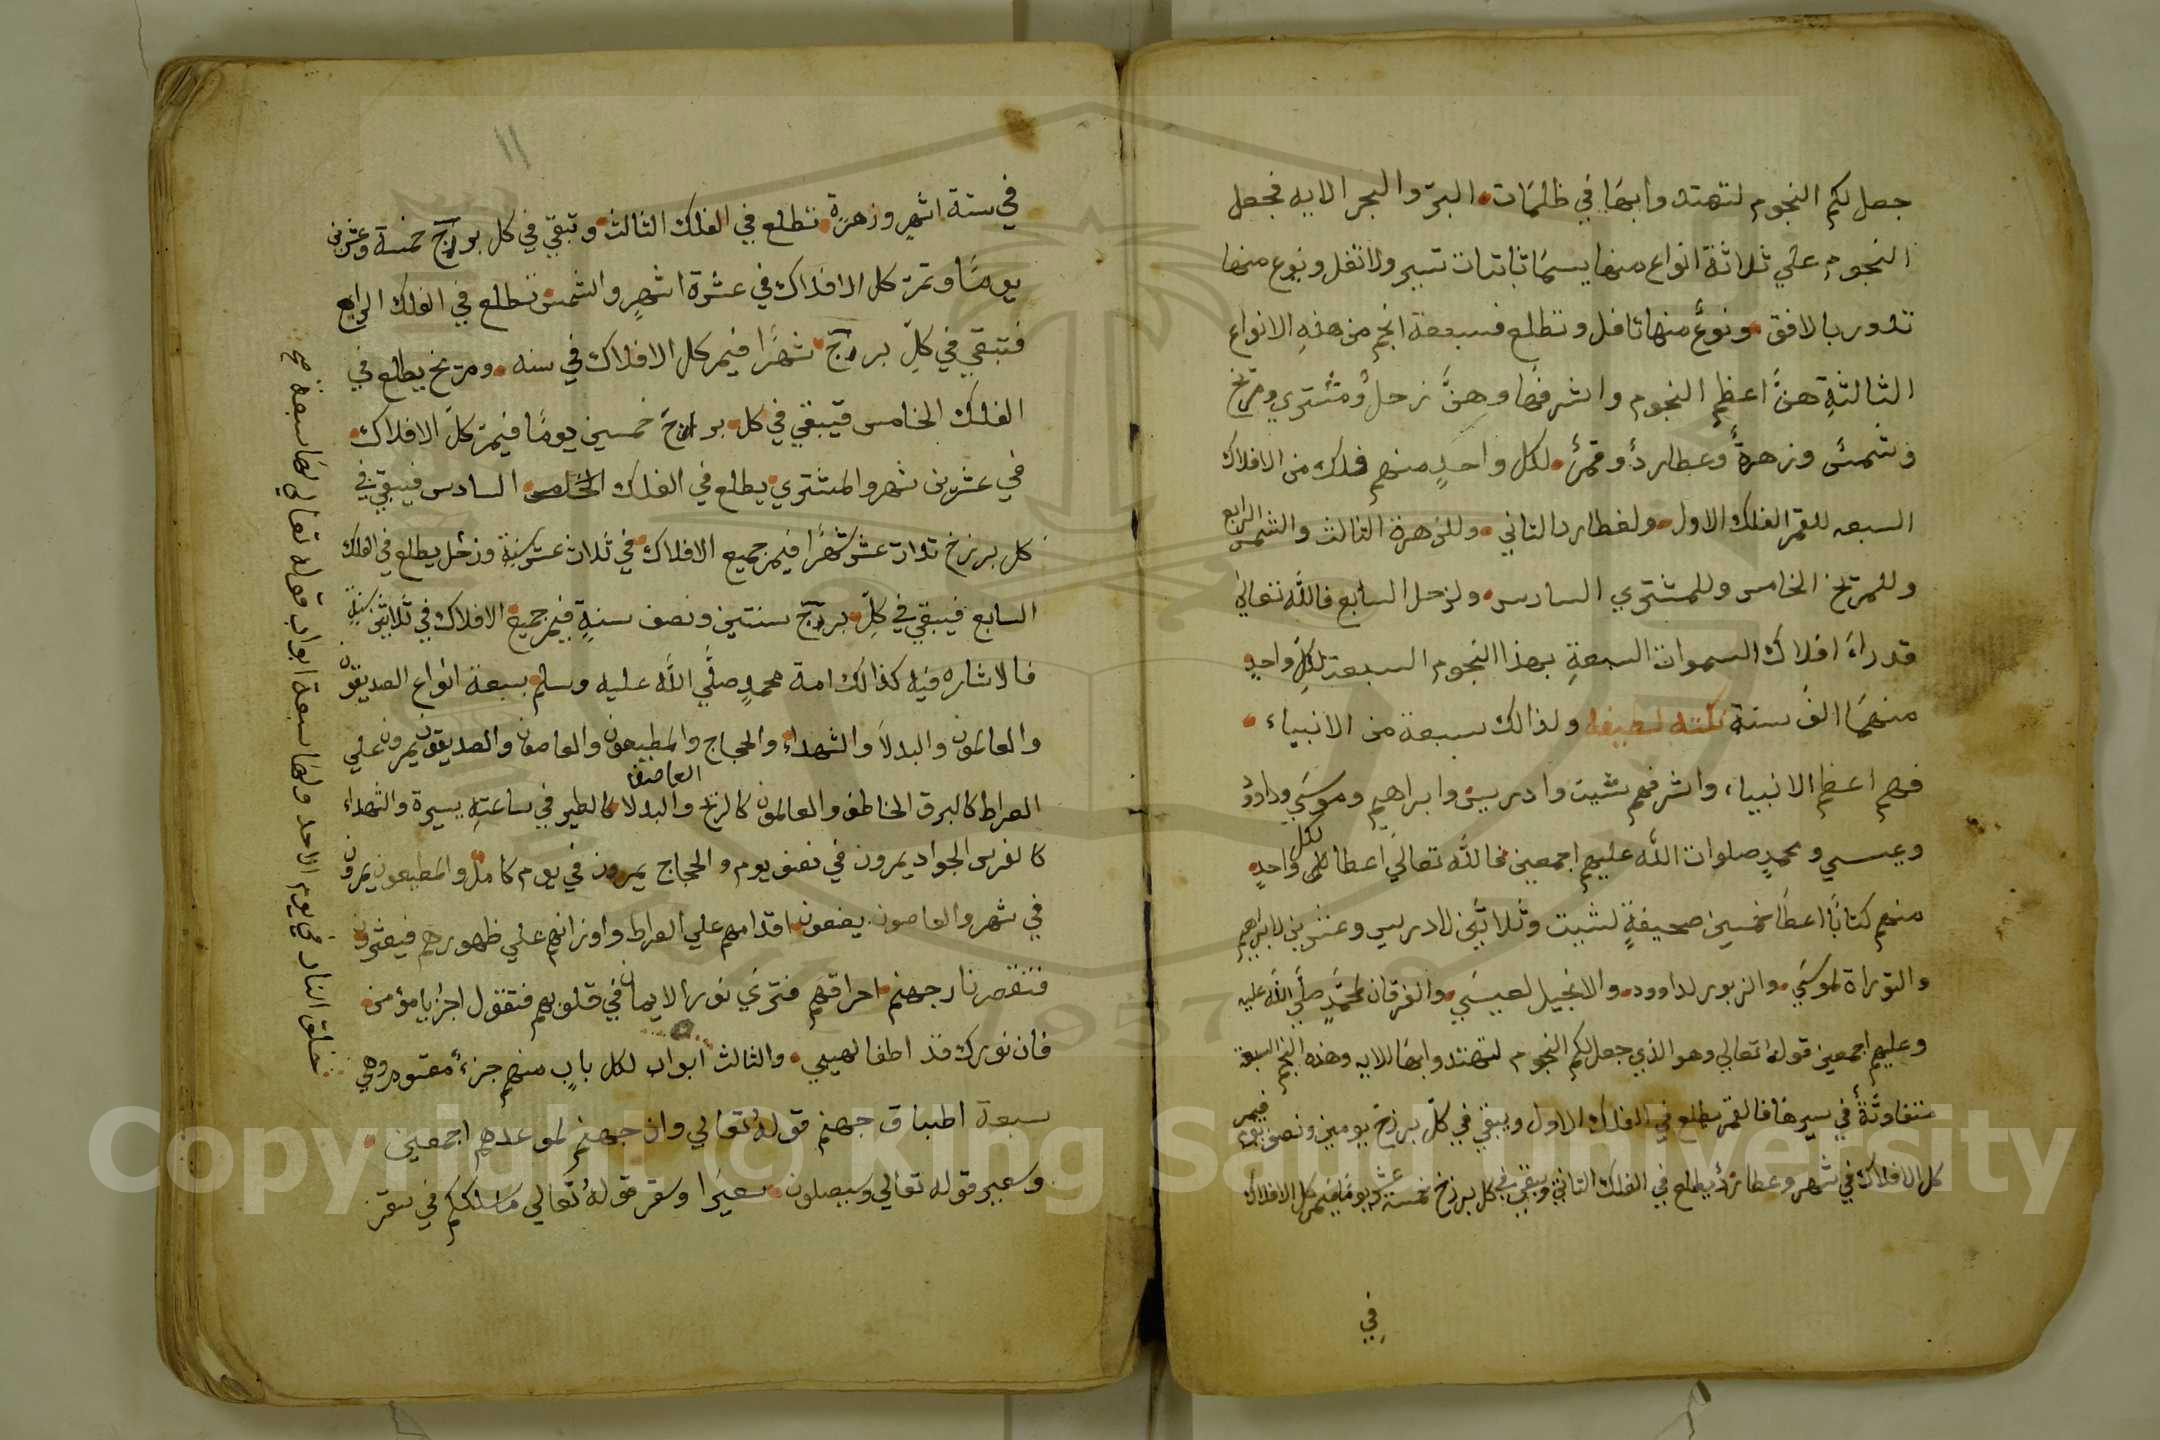 جعل لكم النجوم لتهتدوا بها في ظلمات البر والبحر الايه فجعل
النجوم علي ثلاثة انواع منها يسما ثابتات تسير ولا تفل ونوع منها
تدور بالافق ونوع منها تافل وتطلع فسبعة انجم من هذه الانواع
الثالثة هن اعظم النجوم واشرفها وهن زحل ومشتري ومريخ
وشمس وزهرة وعطارد وقمر لكل واحد منهم فلك من الافلاك
السبعه للقمر الفلك الاول ولعطارد الثاني وللزهرة الثالث والشمس الرابع
وللمريخ الخامس وللمشتري السادس ولزحل السابع فالله تعالي
قد راء افلاك السموات السبعة بهذا النجوم السبعة لكل واحد
منهما الف سنة نكته لطيفه ولذالك سبعة من الانبياء
فهم اعظم الانبياء واشرفهم شيت وادريس وابراهيم وموسي وداوود
وعيسي ومحمد صلوات الله عليهم اجمعين فالله تعالي اعطا لكل واحد
منهم كتابا اعطا خمسين صحيفة لشيت وثلاثين لادريس وعشرين لابراهيم
والتوراة لموسي والزبور لداوود والانجيل لعيسي والفرقان لمحمد صلي الله عليه
وعليهم اجمعين قوله تعالي وهو الذي جعل لكم النجوم لتهتدوا بها الايه وهذه النجم السبعة
متفاوتة في سيرها فالقمر يطلع في الفلك الاول ويبقي في كل برزخ يومين ونصف يوم فيمر
كل الافلاك في شهر وعطارد يطلع في الفلك الثاني ويبقي في كل برزخ خمسة عشر يوما فيمر كل الافلاك
في
١١
في ستة اشهر وزهرة تطلع في الفلك الثالث وتبقي في كل بورج خمسة وعشرين
يوما وتمر كل الافلاك في عشرة اشهر والشمس تطلع في الفلك الرابع
فتبقي في كل برج شهرا فيمر كل الافلاك في سنه ومريخ يطلع في
الفلك الخامس فيبقي في كل برج خمسين يوما فيمر كل الافلاك
في عشرين شهر والمشتري يطلع في الفلك السادس فيبقي في
كل برزخ ثلاث عشر شهرا فيمر جميع الافلاك في ثلاث عشر سنة وزحل يطلع في الفلك
السابع فيبقي في كل برج سنتين ونصف سنة فيمر جميع الافلاك في ثلاثين سنة
فالاشاره فيه كذالك امة محمد صلي الله عليه وسلم بسبعة انواع الصديقون
والعالمون والبدلا والشهداء والحجاج والمطيعون والعاصون والصديقون يمرون علي
العاصون
الصراط كالبرق الخاطف والعالمون كالريح والبدلا كالطير في ساعته يسيرة والشهداء
كالفرس الجواد يمرون في نصف يوم والحجاج يمرون في يوم كامل والمطيعون يمرون
في شهر والعاصون يضعون اقدامهم علي الصراط واوزانهم علي ظهورهم فيعثرون
فتقصر نار جهنم احراقهم فتري نور الايمان في قلوبهم فتقول اجز يا مؤمن
فان نورك قد اطفا لهيبي والثالث ابواب لكل باب منهم جزء مقسوم وهي
سبعة اطباق جهنم قوله تعالي وان جهنم لموعدهم اجمعين
وسعير قوله تعالي وسيصلون سعيرا وسقر قوله تعالي ما سلككم في سقر
خلق النار في يوم الاحد ولها سبعة ابواب قوله تعالي لها سبعة صح
Copyright © King Saud University
1957